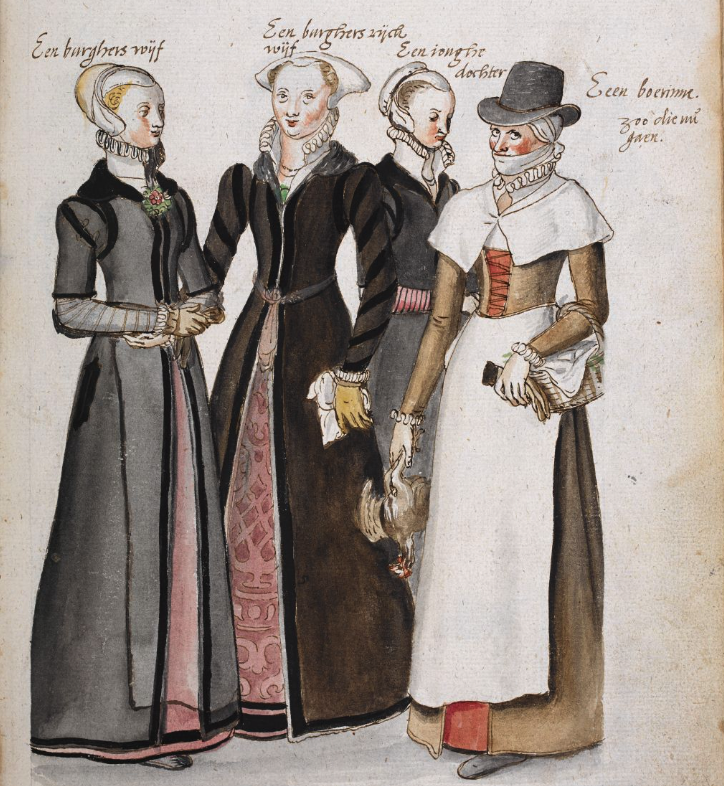 Een burghers wijf
Een burghers rijck
wijf
Een ionghe
dochter
Eeen boerinne
zoo die nu
gaen.